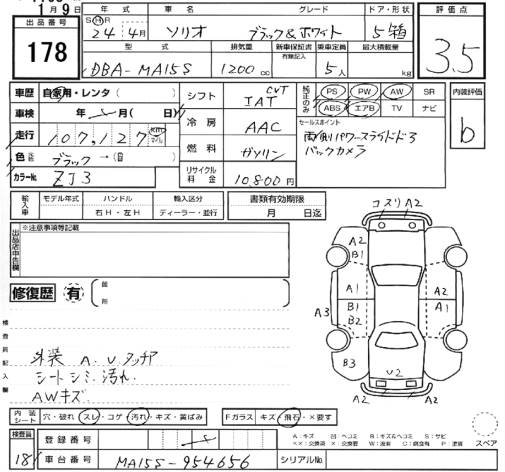 1月9日
出品番号
178
年式
車名
グレード
ドア・形状
評価点
SH
24年4月
ソリオ
ブラック&ホワイト
5箱
3.5
型式
排気量
新車保証書
有無記入
乗車定員
最大積載量
DBA-MA15S
1200cc
5人
kg
車歴
自家用・レンタ( )
車検
年 月( 日)
走行
107,127
km
マイル
色
ブラック→( )
カラーNo.
ZJ3
シフト
CVT
IAT
冷房
AAC
燃料
ガソリン
リサイクル料金
10800円
純正のみ
PS PW AW SR
ABS エアB TV ナビ
セールスポイント
両側パワースライドドア
バックカメラ
内装評価
b
輸入車
モデル年式
ハンドル
輸入区分
右H・左H
ディーラー・並行
書類有効期限
月 日迄
出品店申告欄
※注意事項等記載
修復歴
有
箇所
検査員記入欄
外装 A.Uタッチ
シートシミ・汚れ
AWキズ
コスリ A2
A2
B1
A2
A1
A2
A3
B1
B2
A1
B3
U2
A2
A2
内装シート
穴・破れ スレ・コゲ 汚れ・キズ・黄ばみ
Fガラス
キズ・飛石・×要す
A:キズ
スペア
検査員
18
登録番号
車台番号
MA15S-954656
シリアルNo.